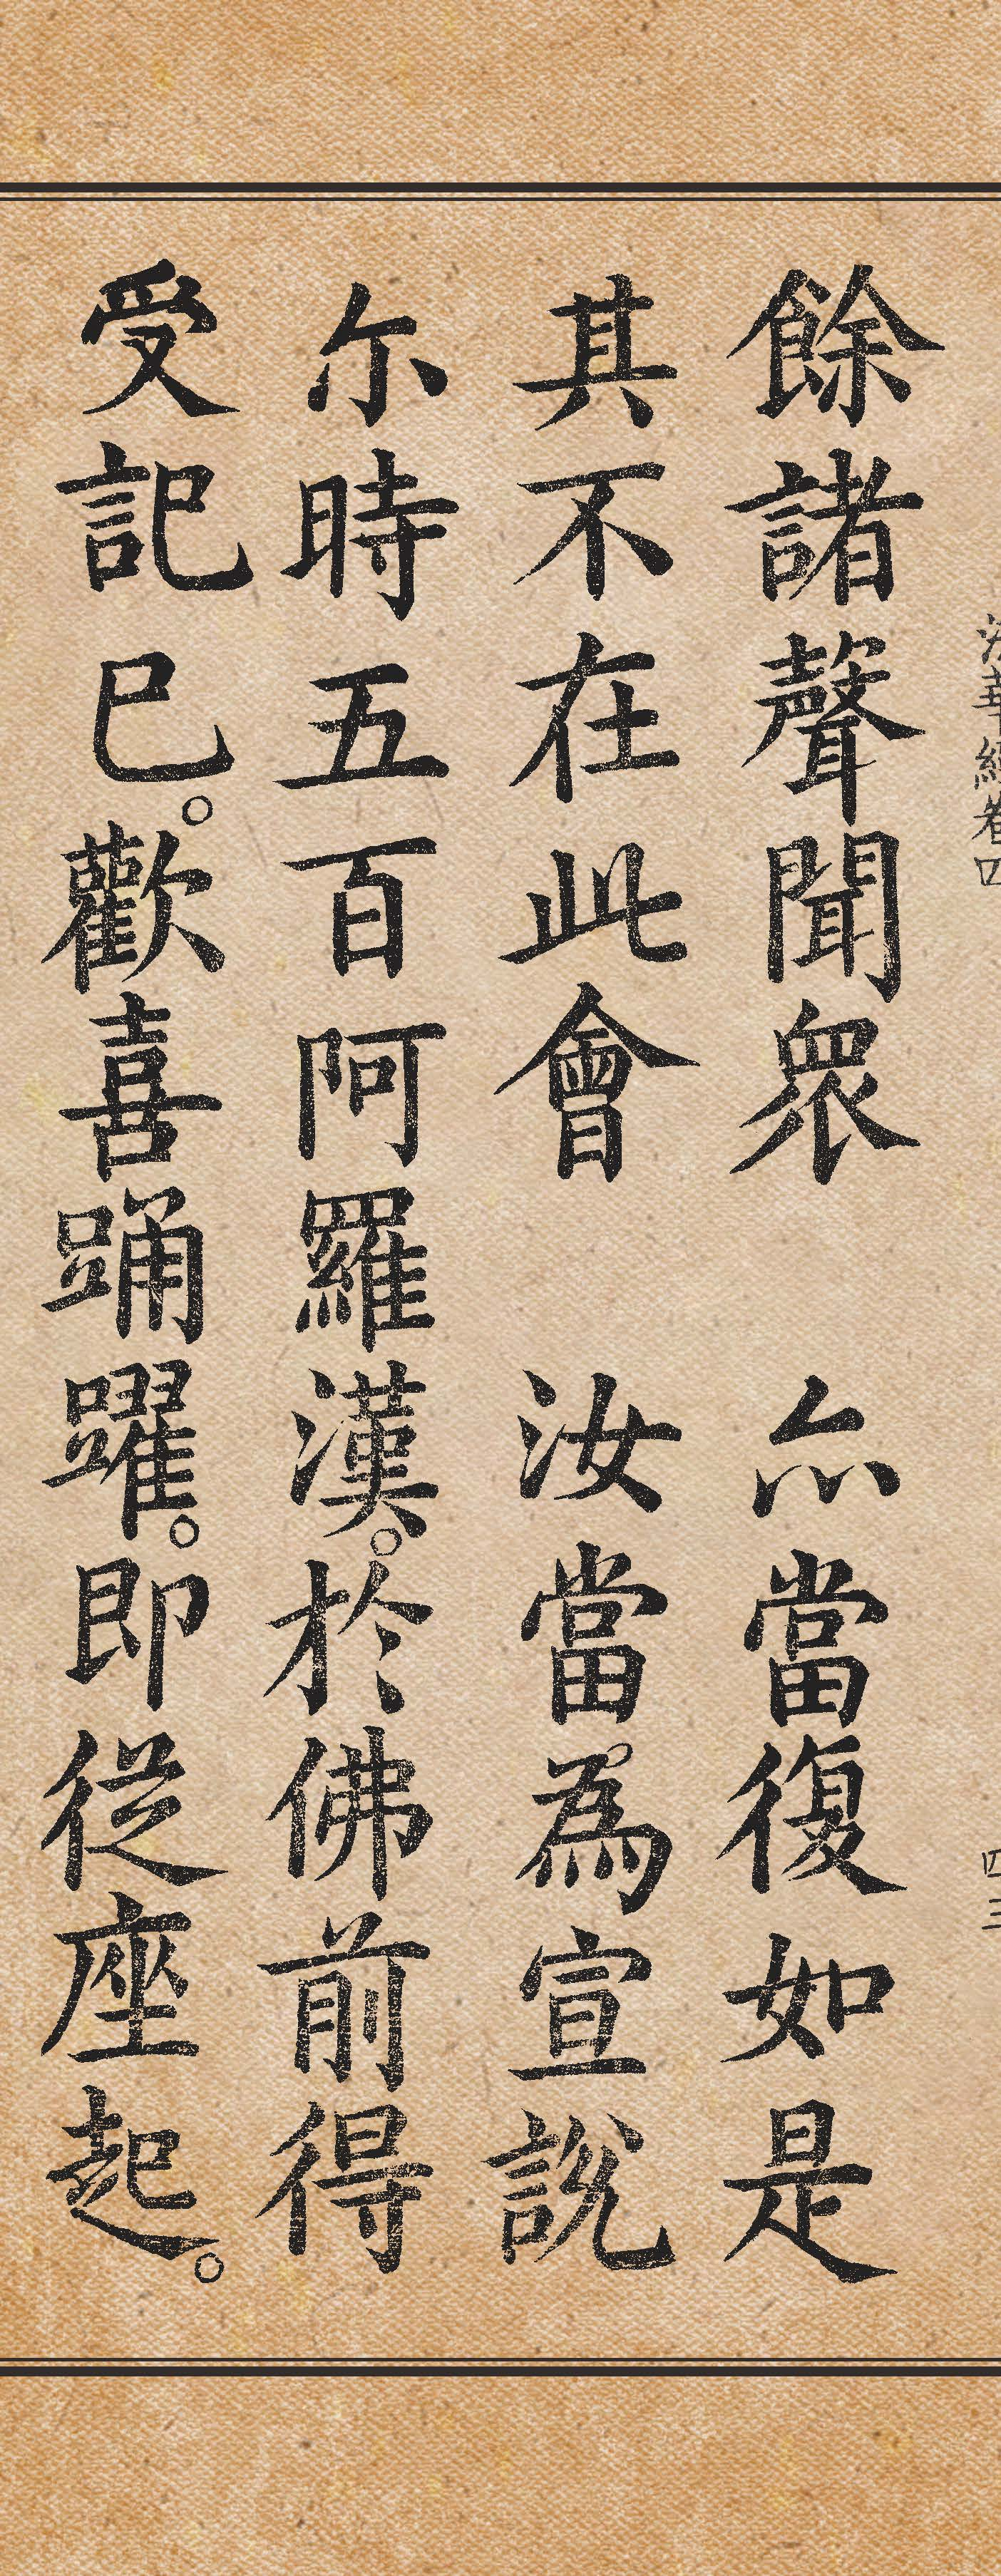 法華經卷四 四三
餘諸聲聞衆 亦當復如是
其不在此會 汝當為宣說
尒時五百阿羅漢。於佛前得
受記已。歡喜踊躍。即從座起。